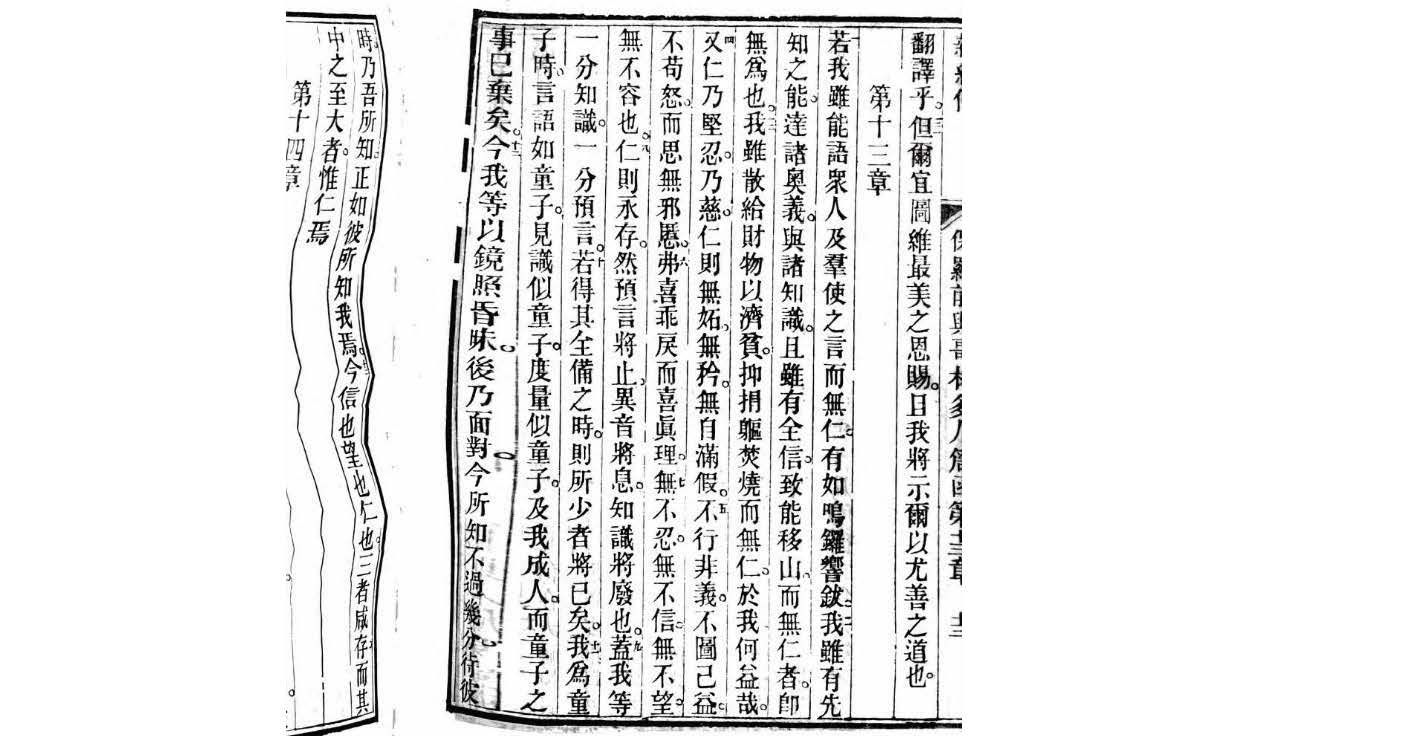 保羅前與哥林多人書函第十三章 十三
翻譯乎三但爾宜圖維最美之恩賜且我將示爾以尤善之道也
第十三章
一若我雖能語衆人及羣使之言而無仁有如鳴鑼響鈸二我雖有先
知之能達諸奧義與諸知識且雖有全信致能移山而無仁者卽
無爲也三我雖散給財物以濟貧抑捐軀焚燒而無仁於我何益哉
四夫仁乃堅忍乃慈仁則無妬無矜無自滿假五不行非義不圖己益
不苟怒而思無邪慝六弗喜乖戾而喜眞理七無不忍無不信無不望
無不容也八仁則永存然預言將止異音將息知識將廢也九蓋我等
一分知識一分預言十若得其全備之時則所少者將已矣十一我爲童
子時言語如童子見識似童子度量似童子及我成人而童子之
事已棄矣十二今我等以鏡照昏昧後乃面對今所知不過幾分待彼
時乃吾所知正如彼所知我焉十三今信也望也仁也三者咸存而其
中之至大者惟仁焉
第十四章